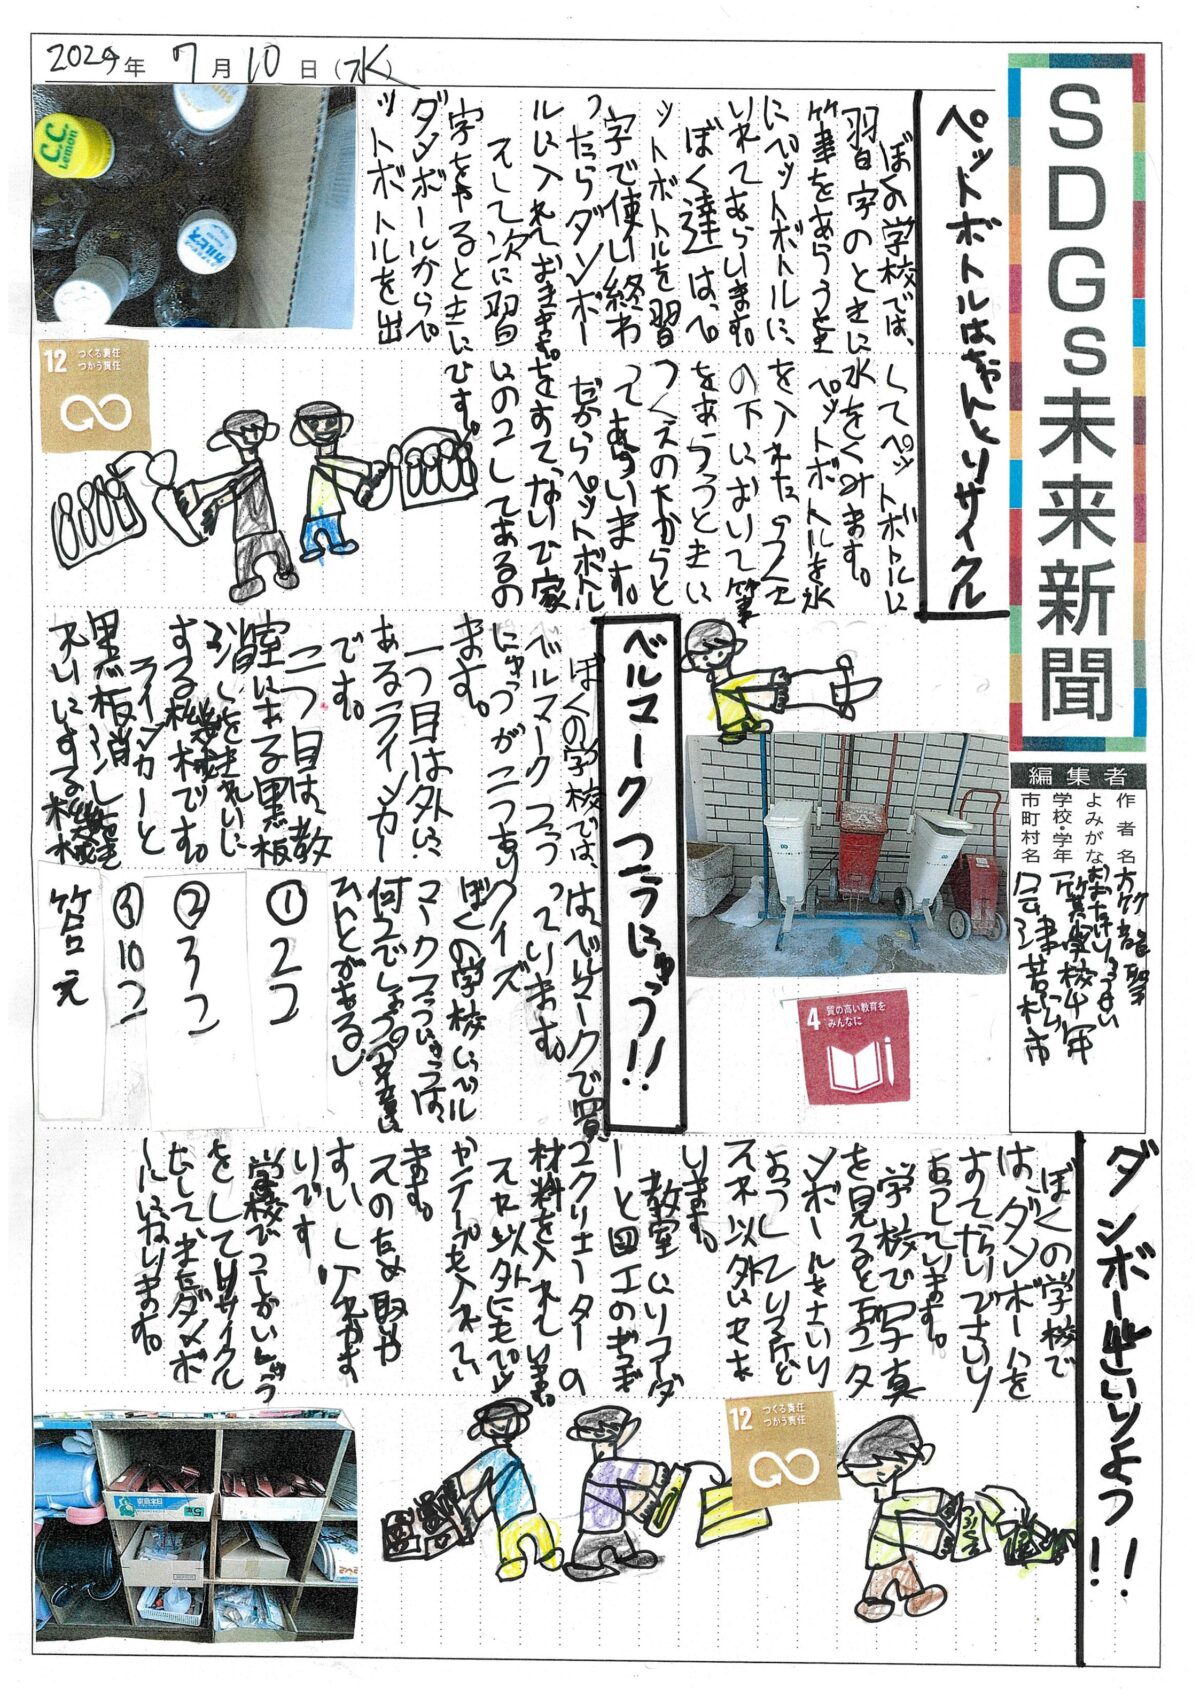 SDGs未来新聞
編集者
作者名
よみがな
学校・学年
市町村名 会津若松市
2024年 7月10日(水)
ペットボトルはちゃんとリサイクル
ぼくの学校では、
習字のときに
筆をあらうとき
にペットボトルに、
いれてあらいます。
ぼく達は、ペ
ットボトルを習
字で使い終わ
ったらダンボー
ルに入れておきます。
そして次に習
字をやるときに
ダンボールからペ
ットボトルを出
してペットボトルに
水をくみます。
ペットボトルを水
を入れた
の下において筆
をあらうときに
つくえの下からと
ってあらいます。
だからペットボトル
をすてないで家
にのこしてあるの
です。
C.C.
Lemon
カルピス
12 つくる責任
つかう責任
ベルマークこうにゅう!!
ぼくの学校では、
ベルマークこう
にゅうが二つあり
ます。
一つ目は外に
あるラインカー
です。
二つ目は、教
室にある黒板
消しをきれいに
する機械です。
ラインカーと
黒板消し
きれいにする機械
は、ベルマークで買
っています。
クイズ
ぼくの学校にベル
マークこうにゅうは、
何こでしょう
ひんとがあるし
①2こ
②3こ
③10こ
答え
4 質の高い教育を
みんなに
ダンボールさいりよう!!
ぼくの学校で
は、ダンボールを
すてないでさいり
ようしています。
学校で写真
を見ると
ンボールをさいり
ようして
それ以外にもた
います。
教室にリコーダ
ーと図工の
クリエーターの
材料を入れています。
それ以外にも
やテープを入れてい
ます。
そのため取や
すいし入れやす
いです
学校で
をしてリサイクル
をして、またダンボ
ールになります。
12 つくる責任
つかう責任